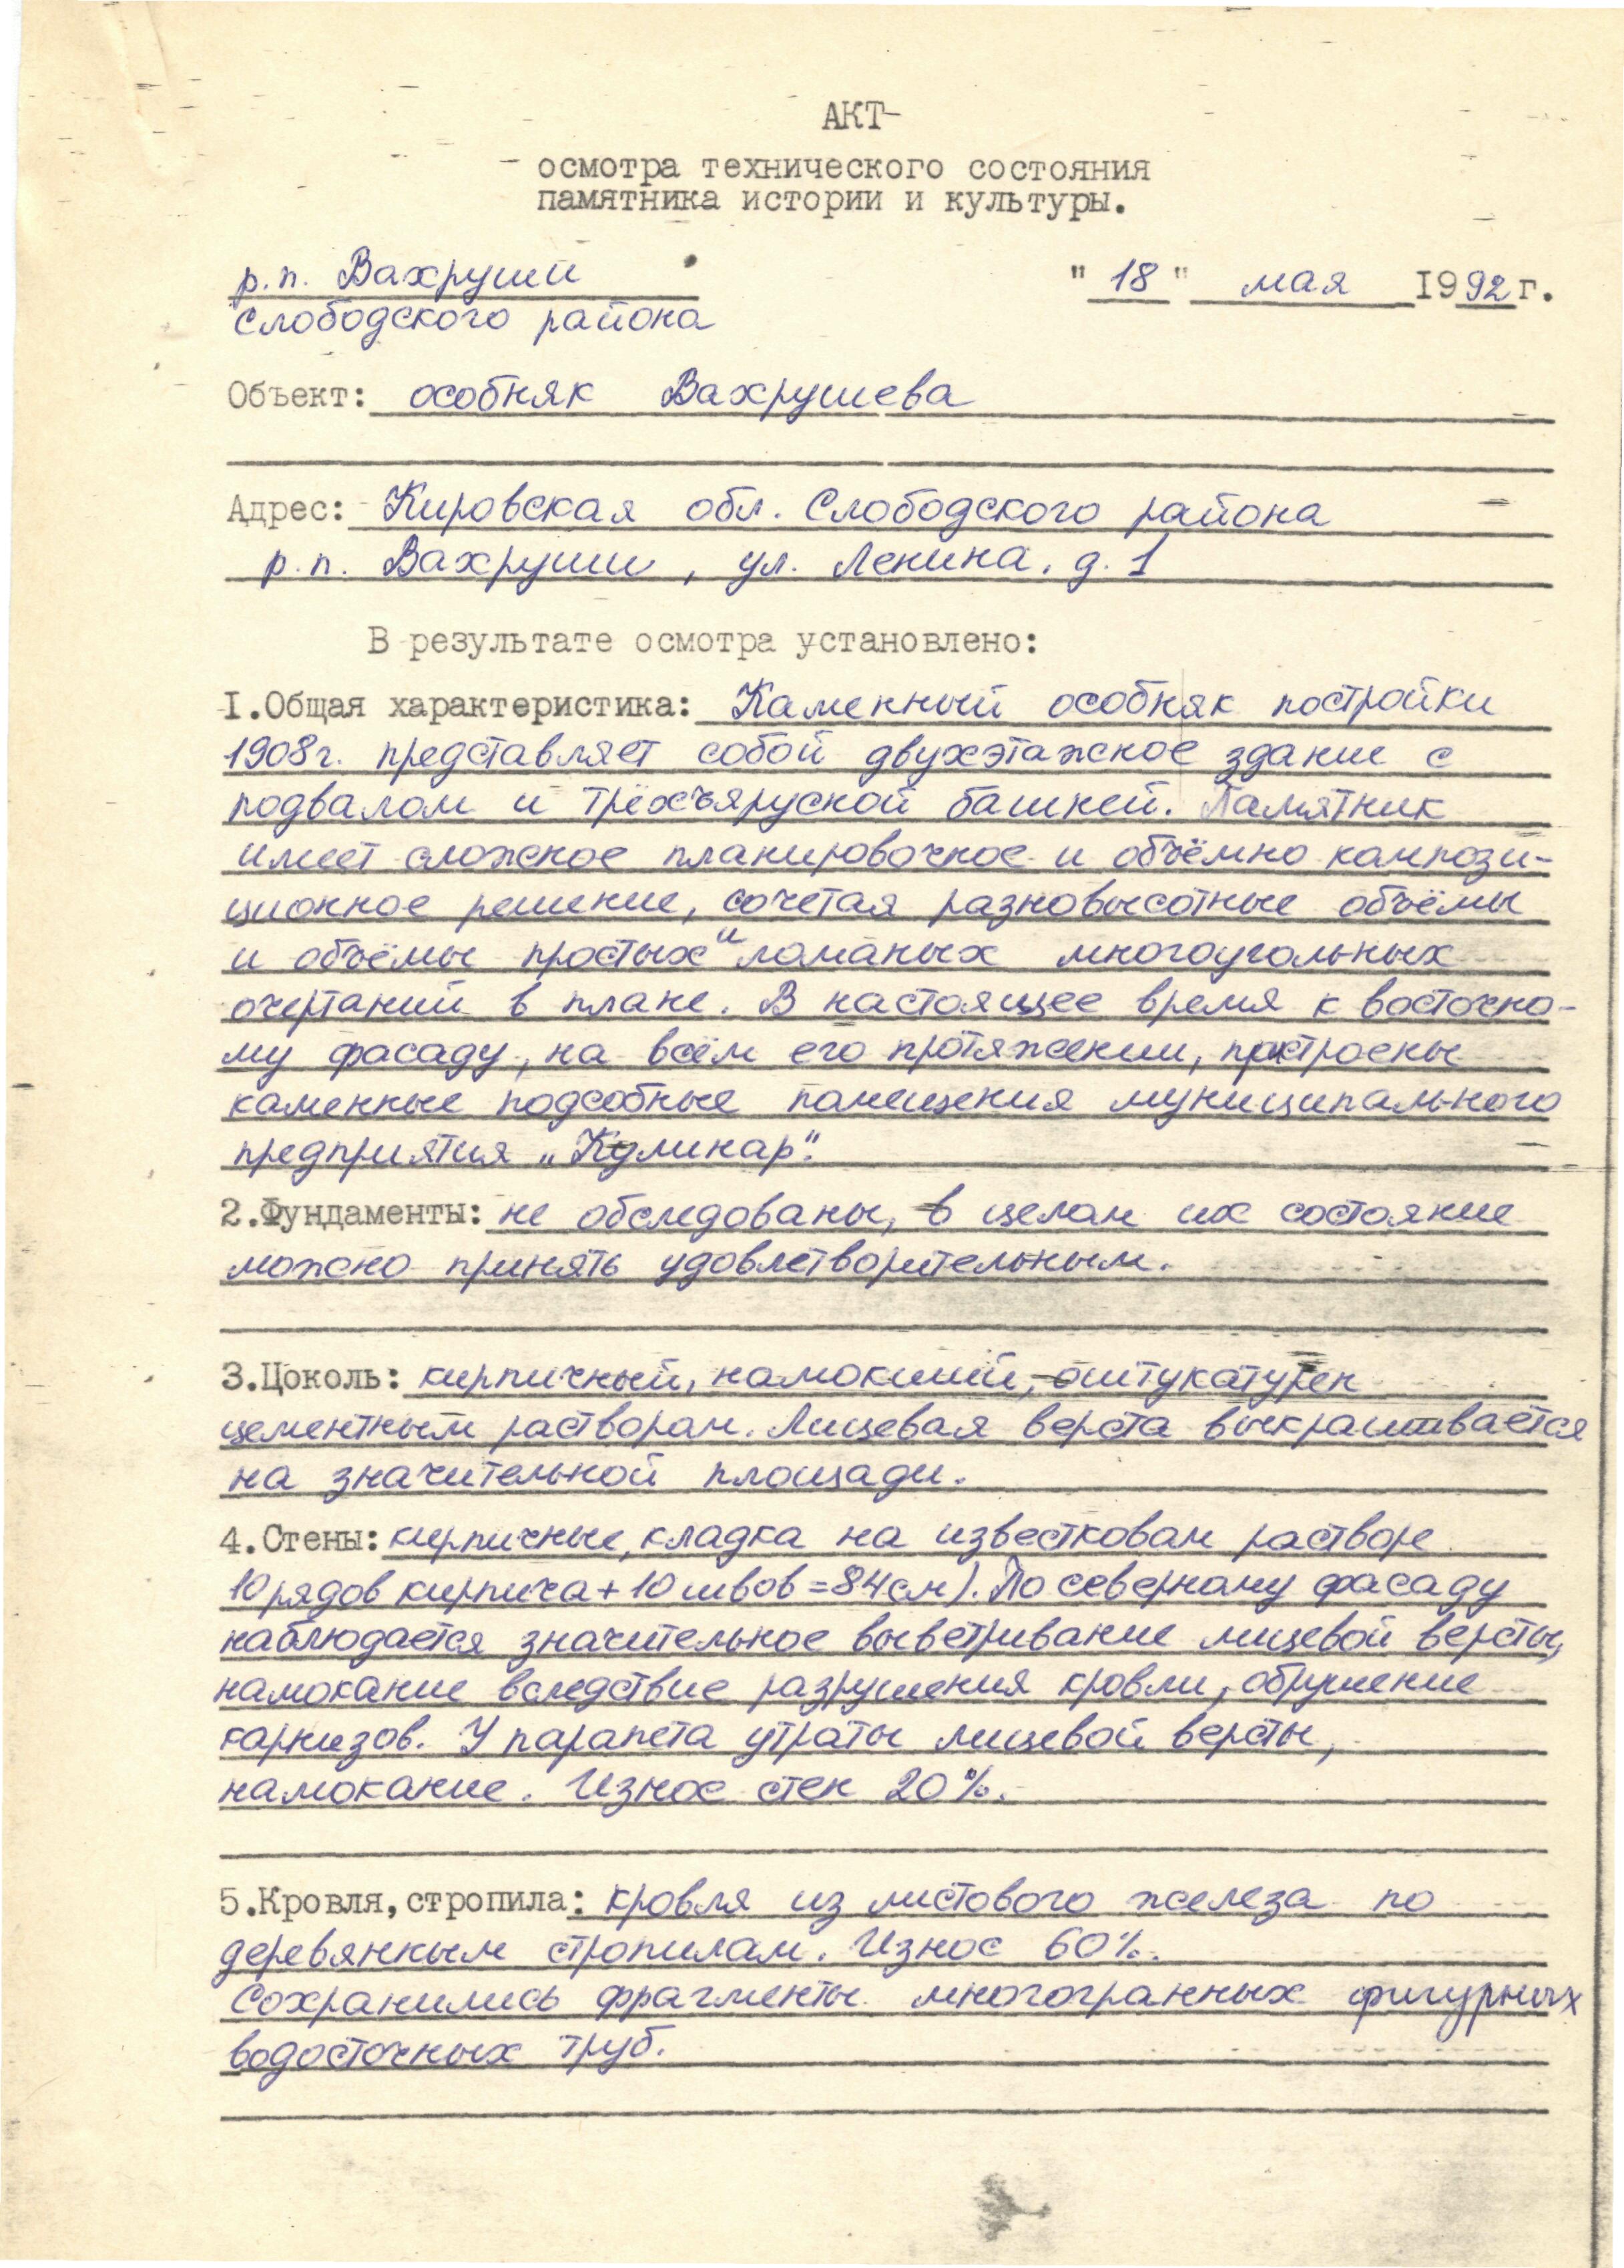 АКТ
осмотра технического состояния
памятника истории и культуры.
р.п. Вахруши
"18" мая 1992 г.
Слободского района
Объект: особняк Вахрушева
Адрес: Кировская обл. Слободского района
р.п. Вахруши, ул. Ленина, д. 1
В результате осмотра установлено:
I.Общая характеристика: Каменный особняк постройки
1908г. представляет собой двухэтажное здание с
подвалом и трёхъярусной башней. Памятник
имеет сложное планировочное и объёмно компози-
ционное решение, сочетая разновысотные объёмы
и объёмы простых и ломаных многоугольных
очертаний в плане. В настоящее время к восточно-
му фасаду, на всём его протяжении, пристроены
каменные подсобные помещения муниципального
предприятия „Кулинар".
2.Фундаменты: не обследованы, в целом их состояние
можно принять удовлетворительным.
3.Цоколь: кирпичный, намокший, оштукатурен
цементным раствором. Лицевая верста выкрашивается
на значительной площади.
4.Стены: кирпичные, кладка на известковом растворе
10 рядов кирпича + 10 швов = 84 см). По северному фасаду
наблюдается значительное выветривание лицевой версты,
намокание вследствие разрушения кровли, обрушение
карнизов. У парапета утраты лицевой версты,
намокание. Износ стен 20%.
5.Кровля, стропила: кровля из листового железа по
деревянным стропилам. Износ 60%.
Сохранились фрагменты многогранных фигурных
водосточных труб.